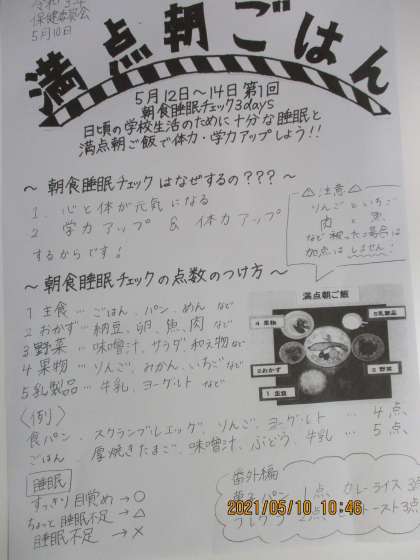 令和3年
保健委員会
5月10日
満点朝ごはん
5月12日～14日第1回
朝食睡眠チェック3days
日頃の学校生活のために十分な睡眠と
満点朝ご飯で体力・学力アップしよう!!
～ 朝食睡眠チェックはなぜするの??? ～
1. 心と体が元気になる
2 学力アップ & 体力アップ
するからです!
△注意△
りんごといちご
肉と魚
など被った場合は
加点はしません!
～ 朝食睡眠チェックの点数のつけ方 ～
1 主食 … ごはん、パン、めん など
2 おかず … 納豆、卵、魚、肉 など
3 野菜 … 味噌汁、サラダ、和え物など
4 果物 … リンゴ、みかん、いちごなど
5 乳製品 … 牛乳、ヨーグルト など
満点朝ご飯
4 果物
5 乳製品
2 おかず
3 野菜
1 主食
〈例〉
食パン、スクランブルエッグ、りんご、ヨーグルト … 4点
ごはん、厚焼きたまご、味噌汁、ぶどう、牛乳 … 5点
睡眠
すっきり目覚め→○
ちょっと睡眠不足→△
睡眠不足→×
番外編
菓子パン 1点、カレーライス 3点
トースト3点
2021/05/10 10:46